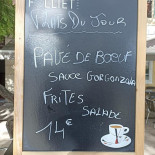 PLATS DU JOUR
PAVÉ DE BOEUF
SAUCE GORGONZOLA
FRITES
SALADE
14€